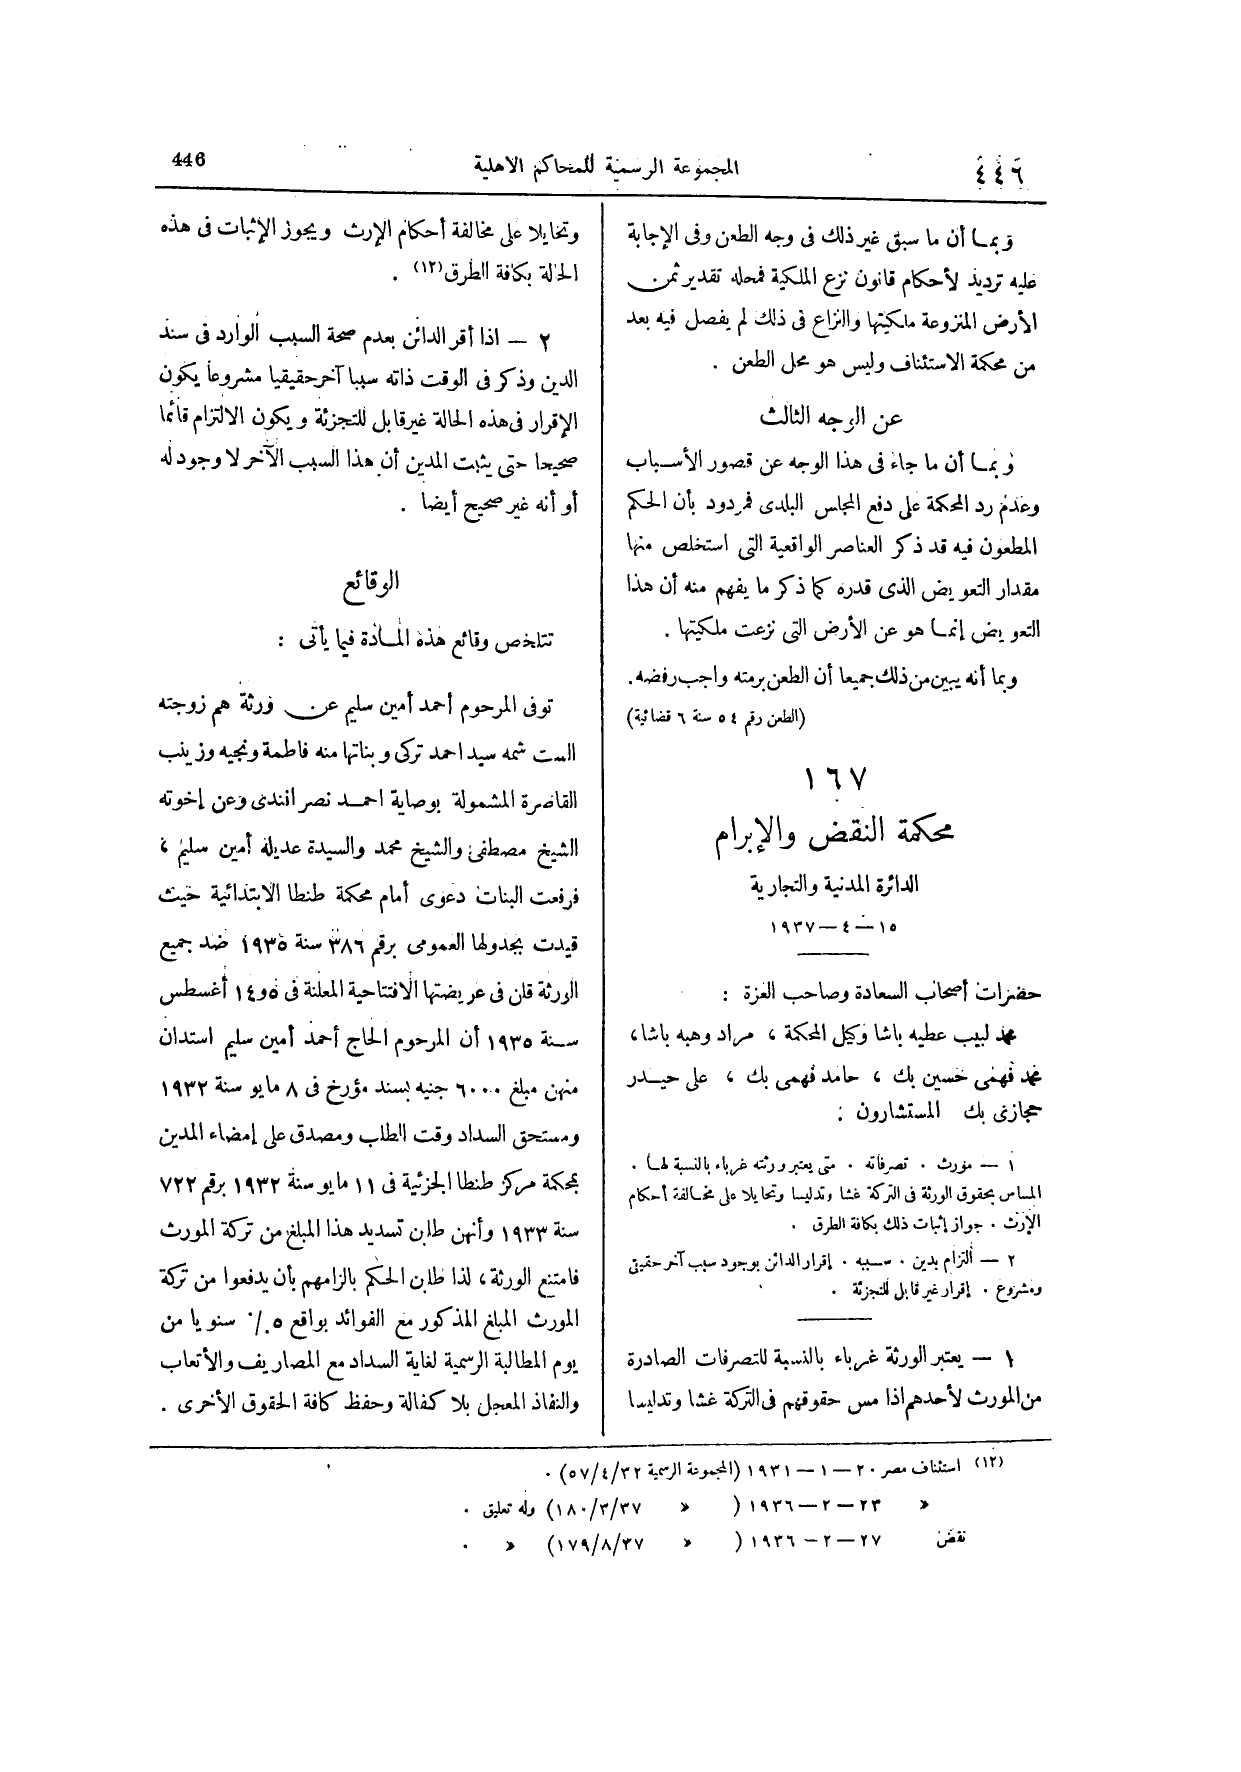 ٤٤٦
المجموعة الرسمية للمحاكم الاهلية
446
وبما أن ما سبق غير ذلك فى وجه الطعن وفى الإجابة
عليه ترديد لأحكام قانون نزع الملكية فمحله تقدير ثمن
الأرض المنزوعة ملكيتها والنزاع فى ذلك لم يفصل فيه بعد
من محكمة الاستئناف وليس هو محل الطعن .
عن الوجه الثالث
وبما أن ما جاء فى هذا الوجه عن قصور الأسباب
وعدم رد المحكمة على دفع المجلس البلدى فمردود بأن الحكم
المطعون فيه قد ذكر العناصر الواقعية التى استخلص منها
مقدار التعويض الذى قدره كما ذكر ما يفهم منه أن هذا
التعويض إنما هو عن الأرض التى نزعت ملكيتها .
وبما أنه يبين من ذلك جميعا أن الطعن برمته واجب رفضه.
(الطعن رقم ٥٤ سنة ٦ قضائية)
١٦٧
محكمة النقض والإبرام
الدائرة المدنية والتجارية
١٥ – ٤ – ١٩٣٧
حضرات أصحاب السعادة وصاحب العزة :
محمد لبيب عطيه باشا وكيل المحكمة ، مراد وهبه باشا،
محمد فهمى حسين بك ، حامد فهمى بك ، على حيدر
حجازى بك المستشارون :
١ – مورث . تصرفاته . متى يعتبر ورثته غرباء بالنسبة لها .
المساس بحقوق الورثة فى التركة غشا وتدليسا وتحايلا على مخالفة أحكام
الإرث . جواز إثبات ذلك بكافة الطرق .
٢ – التزام بدين . سببه . إقرار الدائن بوجود سبب آخر حقيقى
ومشروع . إقرار غير قابل للتجزئة .
١ – يعتبر الورثة غرباء بالنسبة للتصرفات الصادرة
من المورث لأحدهم اذا مس حقوقهم فى التركة غشا وتدليسا
وتحايلا على مخالفة أحكام الإرث ويجوز الإثبات فى هذه
الحالة بكافة الطرق(١٢) .
٢ – اذا أقر الدائن بعدم صحة السبب الوارد فى سند
الدين وذكر فى الوقت ذاته سببا آخر حقيقيا مشروعا يكون
الإقرار فى هذه الحالة غير قابل للتجزئة ويكون الالتزام قائما
صحيحا حتى يثبت المدين أن هذا السبب الآخر لا وجود له
أو أنه غير صحيح أيضا .
الوقائع
تتلخص وقائع هذه المادة فيما يأتى :
توفى المرحوم أحمد أمين سليم عن ورثة هم زوجته
الست شمه سيد احمد تركى وبناتها منه فاطمة ونجيه وزينب
القاصرة المشمولة بوصاية احمد نصر افندى وعن إخوته
الشيخ مصطفى والشيخ محمد والسيدة عديله أمين سليم ،
فرفعت البنات دعوى أمام محكمة طنطا الابتدائية حيث
قيدت بجدولها العمومى برقم ٣٨٦ سنة ١٩٣٥ ضد جميع
الورثة قلن فى عريضتها الافتتاحية المعلنة فى ٥و١٤ أغسطس
سنة ١٩٣٥ أن المرحوم الحاج أحمد أمين سليم استدان
منهن مبلغ ٦٠٠٠ جنيه بسند مؤرخ فى ٨ مايو سنة ١٩٣٢
ومستحق السداد وقت الطلب ومصدق على إمضاء المدين
بمحكمة مركز طنطا الجزئية فى ١١ مايو سنة ١٩٣٢ برقم ٧٢٢
سنة ١٩٣٣ وأنهن طلبن تسديد هذا المبلغ من تركة المورث
فامتنع الورثة ، لذا طلبن الحكم بالزامهم بأن يدفعوا من تركة
المورث المبلغ المذكور مع الفوائد بواقع ٥٪ سنويا من
يوم المطالبة الرسمية لغاية السداد مع المصاريف والأتعاب
والنفاذ المعجل بلا كفالة وحفظ كافة الحقوق الأخرى .
(١٢) استئناف مصر ٢٠ – ١ – ١٩٣١ (المجموعة الرسمية ٥٧/٤/٣٢) .
» ٢٣ – ٢ – ١٩٣٦ ( » ١٨٠/٣/٣٧) وله تعليق .
نقض ٢٧ – ٢ – ١٩٣٦ ( » ١٧٩/٨/٣٧) » .